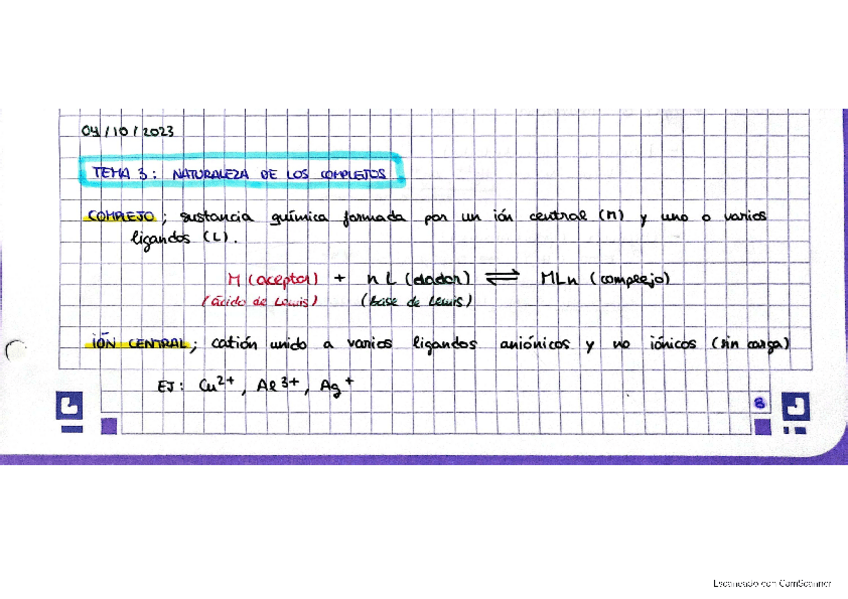 04/10/2023
TEMA 3: NATURALEZA DE LOS COMPLEJOS
COMPLEJO; sustancia química formada por un ión central (M) y uno o varios
ligandos (L).
M (aceptor) + n L (dador) ⇌ MLn (complejo)
(ácido de Lewis) (base de Lewis)
IÓN CENTRAL; catión unido a varios ligandos aniónicos y no iónicos (sin carga)
EJ: Cu²⁺, Al³⁺, Ag⁺
8
Escaneado con CamScanner